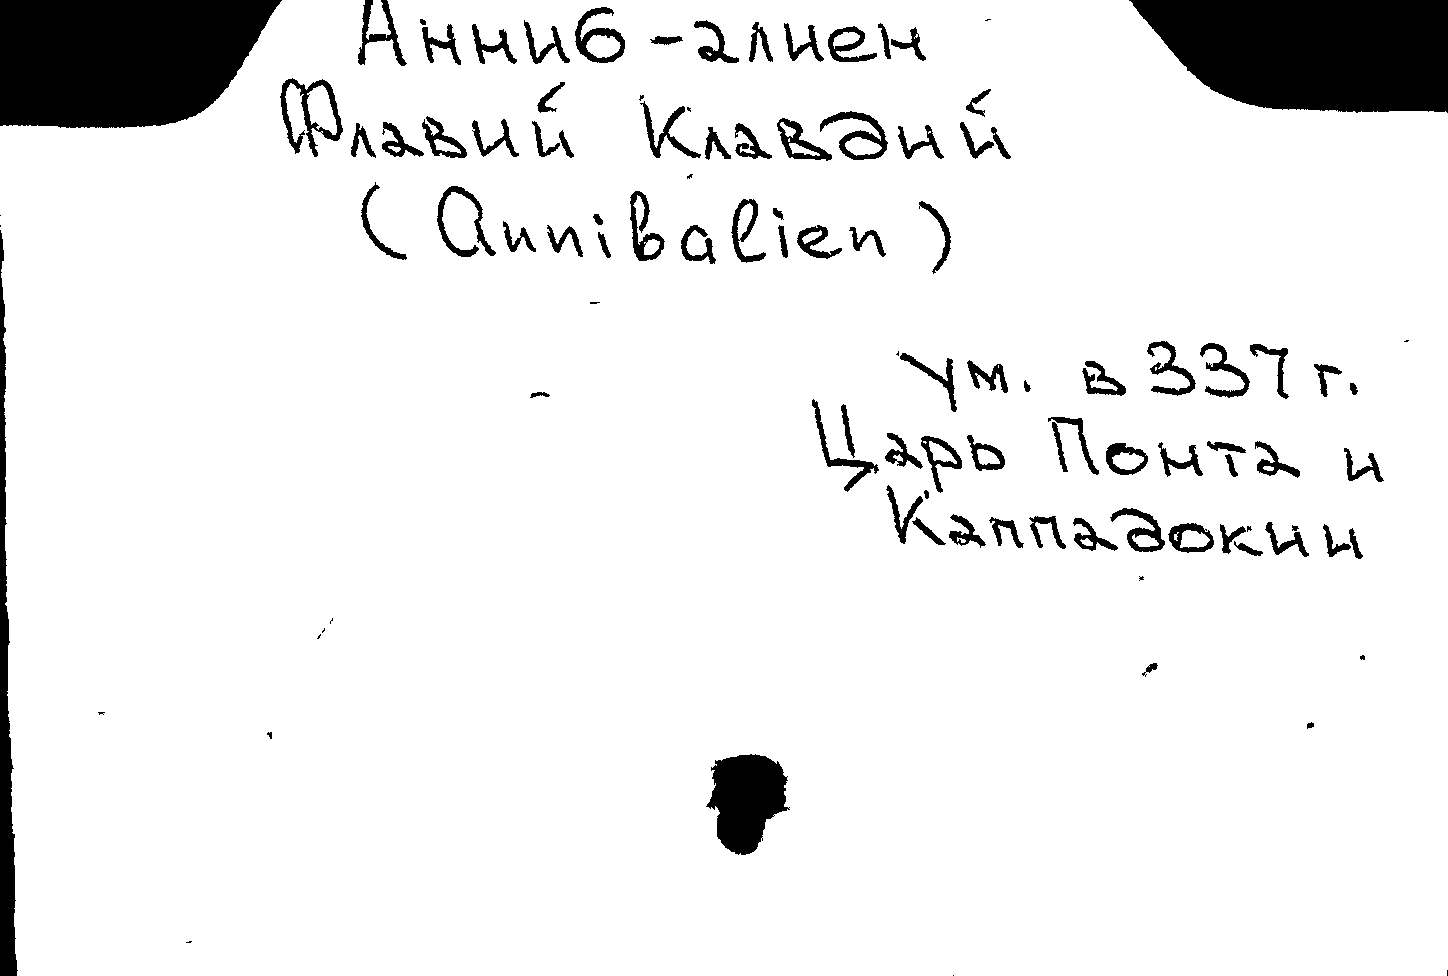 Анниб-алиен
Флавий Клавдий
(Annibalien)
ум. в 337 г.
Царь Понта и
Каппадокии